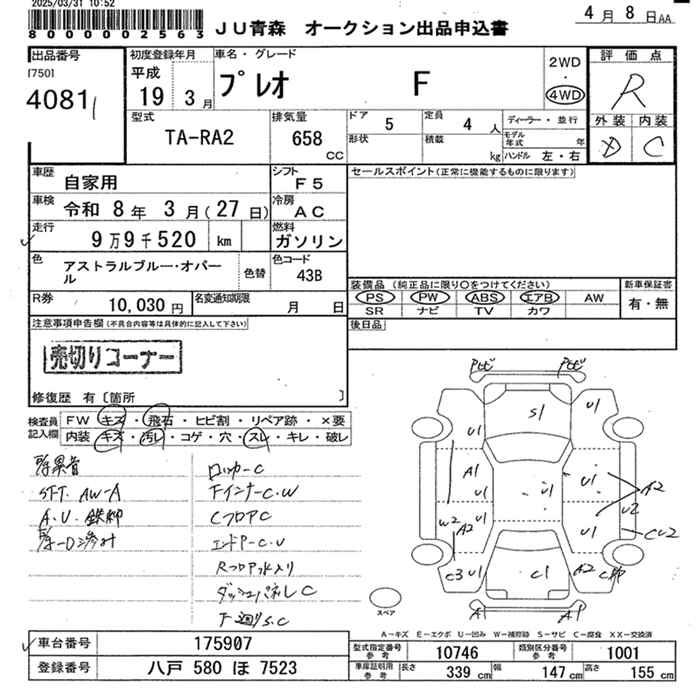 2025/03/31 10:52
8000002563
JU青森 オークション出品申込書
4月8日AA
出品番号
[750]
4081
初度登録年月
平成
19 3月
車名・グレード
プレオ F
2WD
・
4WD
評価点
R
外装 内装
D C
型式
TA-RA2
排気量
658
CC
ドア
5
定員
4 人
形状
積載
kg
ディーラー・並行
モデル年式 年
ハンドル 左・右
車歴
自家用
シフト
F5
車検
令和 8年 3月(27日)
冷房
AC
走行
9万9千520 km
燃料
ガソリン
色
アストラルブルー・オパール
色替
色コード
43B
R券
10,030円
名変通知期限
月 日
セールスポイント(正常に機能するものに限ります)
装備品(純正品に限り〇をつけてください)
PS PW ABS エアB AW
SR ナビ TV カワ
新車保証書
有・無
後日品
注意事項申告欄(不具合内容等は具体的に記入して下さい)
売切りコーナー
修復歴 有〔箇所 〕
検査員記入欄
FW キズ・飛石・ヒビ割・リペア跡・×要
内装 キズ・汚レ・コゲ・穴・スレ・キレ・破レ
SFT AW-A
ロッカーC
FインナーC.W
CフロアC
エンドP-C.U
Rフロア水入り
ダッシュパネルC
F廻りS.C
S1
U1
U1
A1
U1
U1
U1
A2
U2
W2
A2
U1
U1
CU2
C3
U1
C1
A2
A
A1
スペア
A-キズ E-エクボ U-凹み W-補修跡 S-サビ C-腐食 XX-交換済
車台番号
175907
登録番号
八戸 580 ほ 7523
型式指定番号
参考
10746
類別区分番号
参考
1001
車庫証明用
参考
長さ
339 cm
幅
147 cm
高さ
155 cm